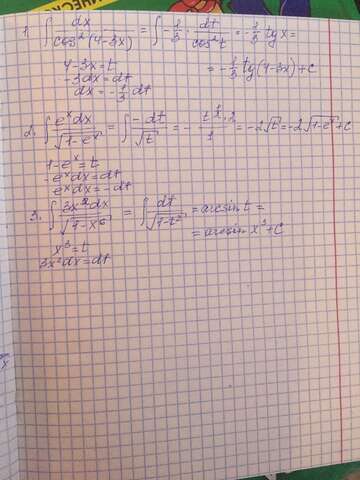 1. ∫ dx / cos²(4-3x) = ∫ -1/3 · dt / cos²t = -1/3 tg x =
4-3x=t
= -1/3 tg(4-3x)+C
-3dx=dt
dx = -1/3 dt
2. ∫ eˣdx / √(1-eˣ) = ∫ -dt / √t = - t^(1/2)·2 / 1 = -2√t = -2√(1-eˣ)+C
1-eˣ=t
-eˣdx=dt
eˣdx=-dt
3. ∫ 3x²dx / √(1-x⁶) = ∫ dt / √(1-t²) = arcsin t =
= arcsin x³+C
x³=t
3x²dx=dt